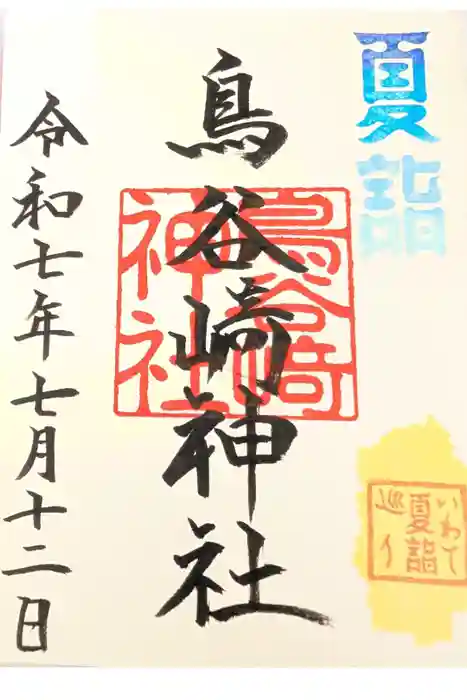 夏詣
鳥谷崎神社
鳥谷崎
神社
令和七年七月十二日
いわて
夏詣
巡り